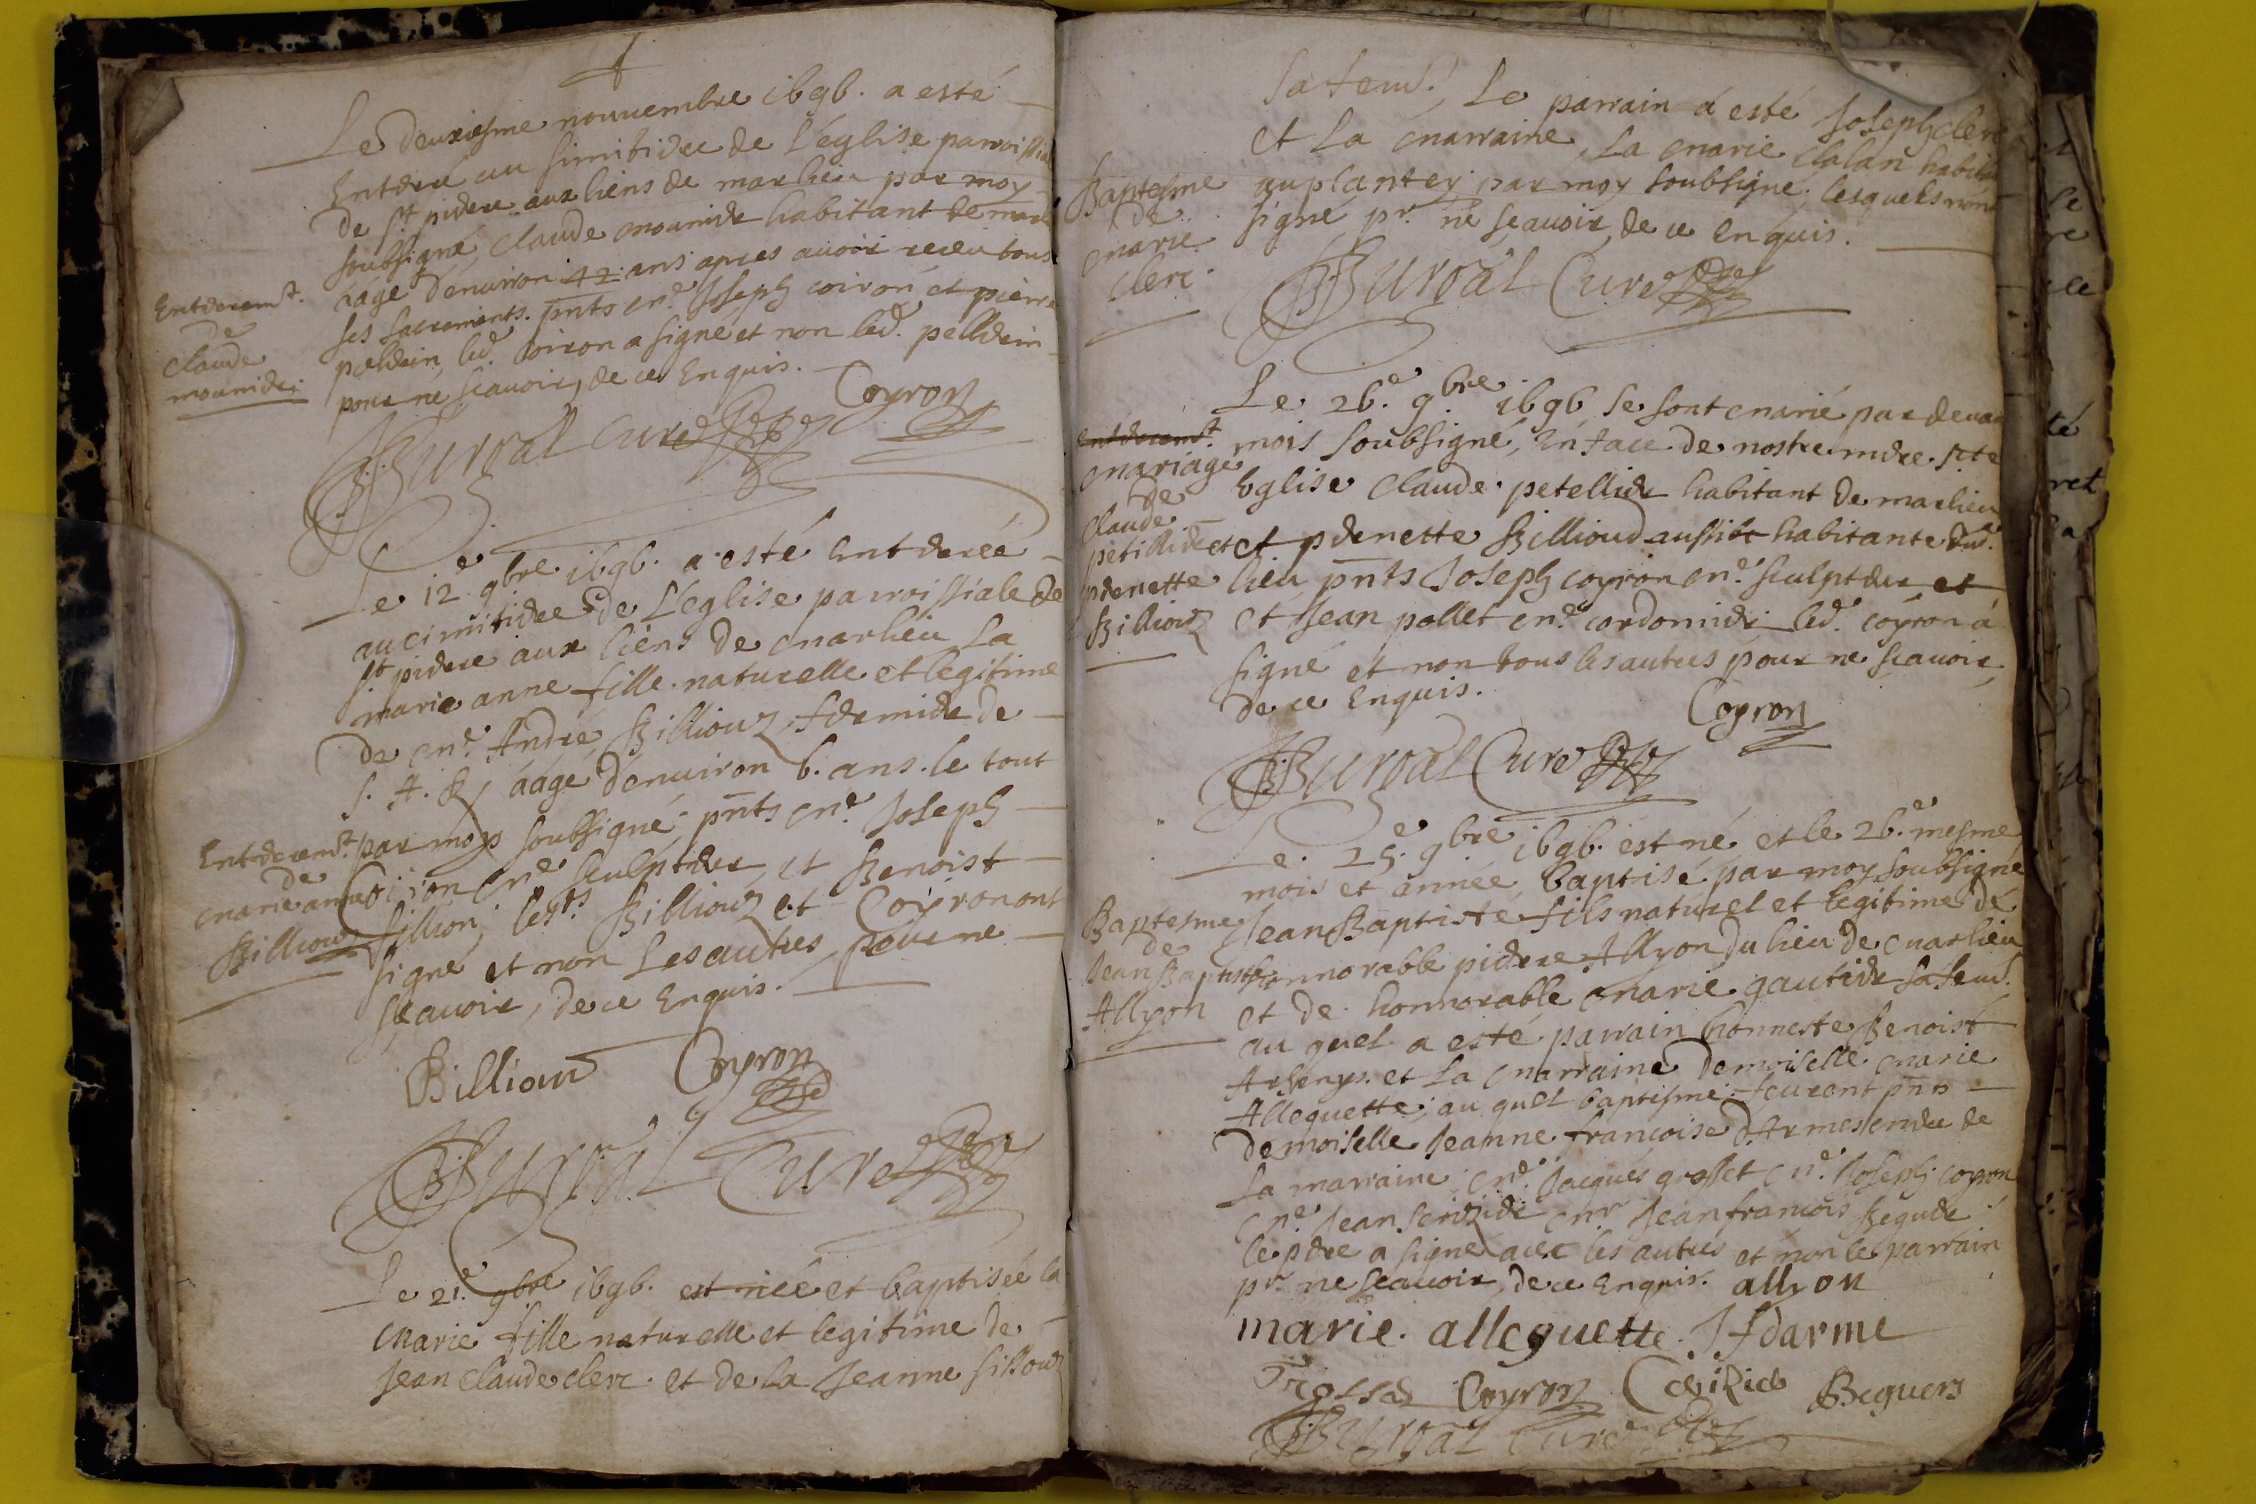 Le deuxiesme nouvembre 1696. a esté
Enterré au simitiere de L'église parroissiale
de st. pierre aux liens de marlieu par moy
soubsigné, Claude mounier habitant de marlieu
aagé d'enuiron 42 ans apres auoir receu tous
ses sacrements. pnts me. Joseph coiron et pierre
led. Coiron a signé et non led.
pour ne scauoir, de ce Enquis.
Coyron
Burdal Curé
Enterremt.
de
Claude
mounier.
Le 12e 9bre 1696. a esté Enterrée
au cimitiere de L'église parroissiale de
st. pierre aux liens de marlieu La
marie anne fille naturelle et legitime
de me. André Billioud, fermier de
S. A. R. aagé d'enuiron 6. ans. le tout
par moy soubsigné; pnts me. Joseph
Coiron me sculpteur, et Benoist
fillion; lesds. Billioud et Coyron ont
signé et non Les autres, pour ne
sçauoir, de ce Enquis.
Enterremt.
de
marie anne
Billioud
Billioud Coyron
Burdal Curé
Le 21e. 9bre 1696. est née et baptisée la
marie fille naturelle et legitime de
Jean Claude clerc. et de la Jeanne
sa fem. Le parrain a esté Joseph clerc
et La marraine, La marie
par moy soubsigné; lesquels n'ont
signé pr. ne sçauoir, de ce Enquis.
Baptesme
de
marie
Clerc.
Burdal Curé
Le 26e. 9bre. 1696 se sont marié par deuant
mois soubsigné, En face de nostre mere ste
Eglise Claude petellier habitant de marlieu
et pernette Billioud aussi habitante dud.
lieu, pnts Joseph coyron me. sculpteur et
et Jean pollet me. cordonnier led. coyron a
signé et non tous les autres pour ne scauoir,
de ce Enquis.
Enterremt.
mariage
de
Claude
petillier et
pernette
Billioud
Coyron
Burdal Curé
Le. 25e. 9bre 1696. est né, et le 26e. mesme
mois et année, baptisé par moy soubsigné
Jean Baptiste fils naturel et legitime de
honnorable pierre Allyon du lieu de marlieu
et de honnorable marie gautier sa fem.
au quel a esté parrain honneste Benoist
et La marraine Demoiselle marie
Alleguette; au quel baptesme feurent pnts
demoiselle Jeanne françoise d'Armes mere de
La marraine; me. Jacques grosset me. Joseph coyron
me. Jean me Jean françois
le pere a signé auec les autres et non le parrain
pr. ne scauoir, de ce Enquis. allyon
Baptesme
de
Jean Baptiste
Allyon
marie. alleguette. J f darme
Coyron Beguers
Burdal Curé